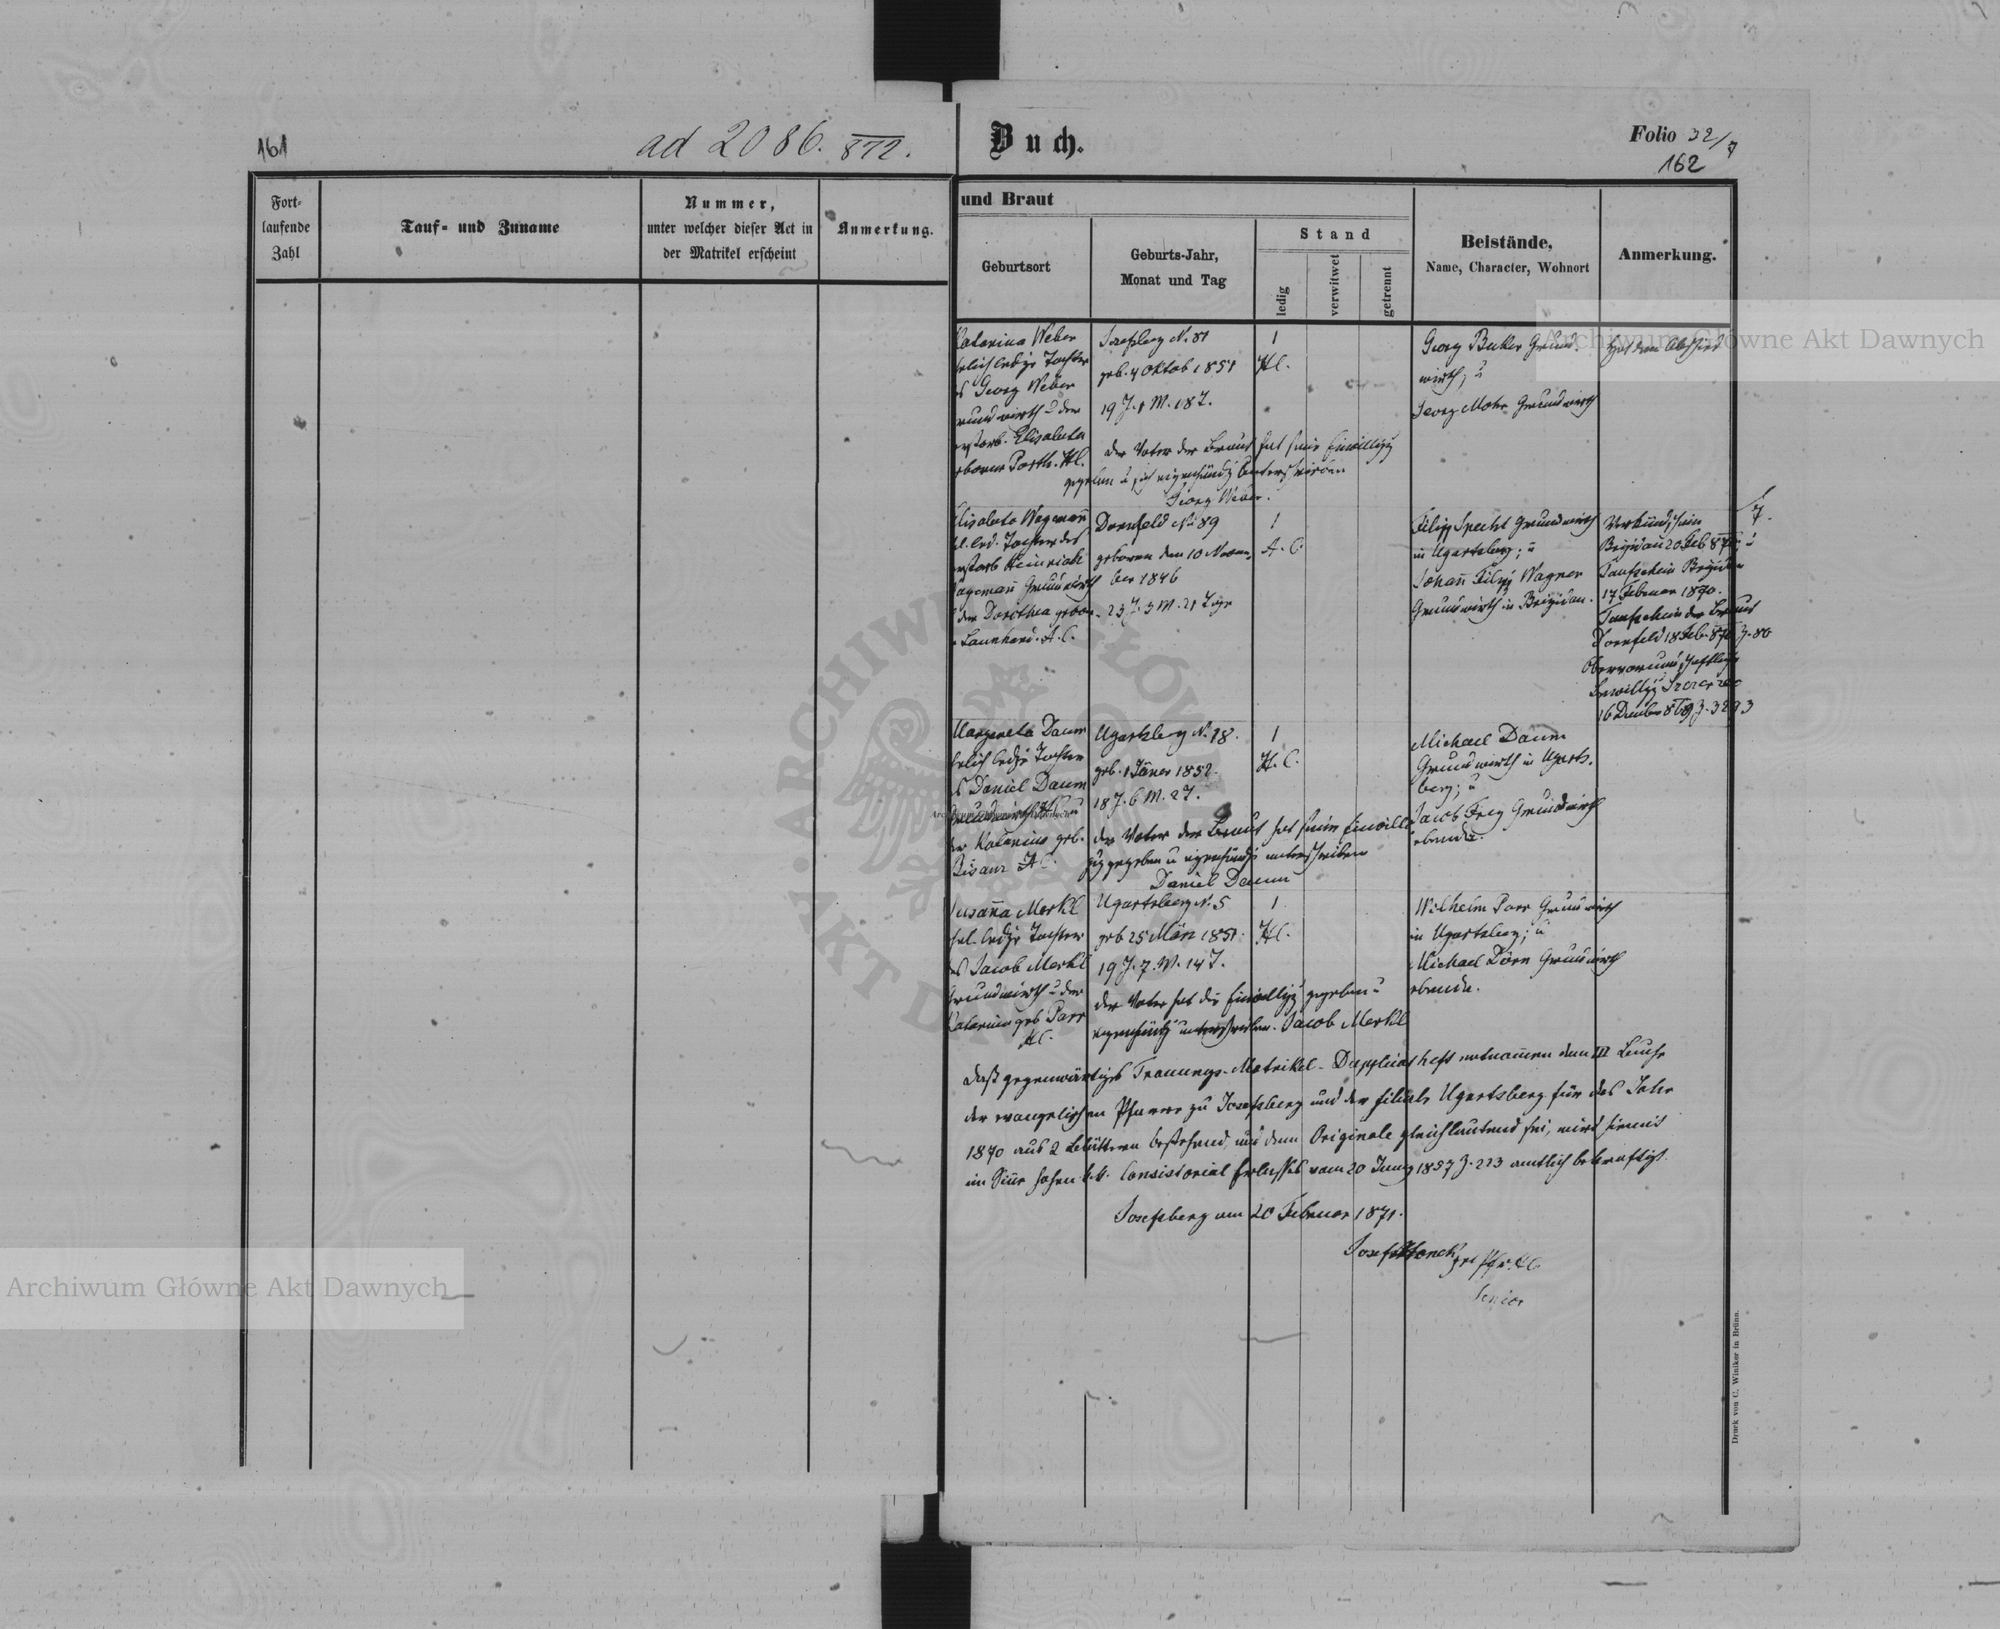 161
ad 2086. 872.
Fort-
laufende
Zahl
Tauf- und Zuname
Nummer,
unter welcher dieser Act in
der Matrikel erscheint
Anmerkung.
Buch.
Folio 32/7
162
und Braut
Geburtsort
Geburts-Jahr,
Monat und Tag
Stand
ledig
verwitwet
getrennt
Beistände,
Name, Character, Wohnort
Anmerkung.
Archiwum Główne Akt Dawnych
Katarina Weber
ehelich ledige Tochter
Georg Weber
Grundwirth u der
verstorb. Elisabeta
geborene Porth. HC.
Josefsberg N. 81
geb. 4 Oktob 1851
19 J. 1 M. 18 T.
1
HC.
der Vater der Braut hat seine Einwilligg
gegeben u sich eigenhändig unterschrieben
Georg Weber.
Georg Grund-
wirth, u
Georg Mohr Grundwirth
Elisabeta Wagemañ
ehl. led. Tochter des
verstorb Heinrich
Wagemañ Grundwirth
der Dorothea gebor.
Launhard. A.C.
Dornfeld No 89
geboren den 10 Novem-
ber 1846
23 J. 3 M. 21 Tage
1
A.C.
Filipp Specht Grundwirth
in Ugartsberg; u
Johañ Filipp Wagner
Grundwirth in Brigidau.
7.
Verkündschein
Brigidau 20 Feb 870; u
Taufschein Brigidau
17 Februar 1870.
Taufschein der Braut
Dornfeld 18 Feb. 870 Z. 80
Obervormundschaftliche
16 Dember 869 Z. 3293
Margareta Daum
ehelich ledige Tochter
des Daniel Daum
Grundwirth HC u
der Katarina geb.
Bisanz HC.
Ugartsberg N. 18.
geb. 1 Jäner 1852.
18 J. 6 M. 2 T.
1
H.C.
der Vater der Braut hat seine Einwilli-
gug gegeben u eigenhändig unterschrieben
Daniel Daum
Michael Daum
Grundwirth in Ugarts-
berg; u
Jacob Frey Grundwirth
ebenda.
Susaña Merkl
ehel. ledige Tochter
des Jacob Merkl
Grundwirth u der
Katarina geb Parr
HC.
Ugartsberg N. 5
geb 25 März 1851.
19 J. 7. M. 14 T.
1
HC.
der Vater hat die Einwilligg gegeben u
eigenhändig unterschrieben. Jacob Merkl
Wilhelm Parr Grundwirth
in Ugartsberg; u
Michael Dörn Grundwirth
ebenda.
Daß gegenwärtiges Trauungs-Matrikel-Duplicatheft entnomen dem III Buche
der evangelischen Pfarre zu Josefsberg und der Filiale Ugartsberg für das Jahr
1870 aus 2 Blättern bestehend, und dem Originale gleichlautend sei, wird hiemit
im Siñe hohen k.k. Consistorial Erlasses vom 20 Juny 1857 Z. 213 amtlich bekräftigt.
Josefsberg am 20 Februar 1871.
Senior
Druck von C. Winiker in Brünn.
Archiwum Główne Akt Dawnych
ARCHIWUM GŁÓWNE AKT DAWNYCH